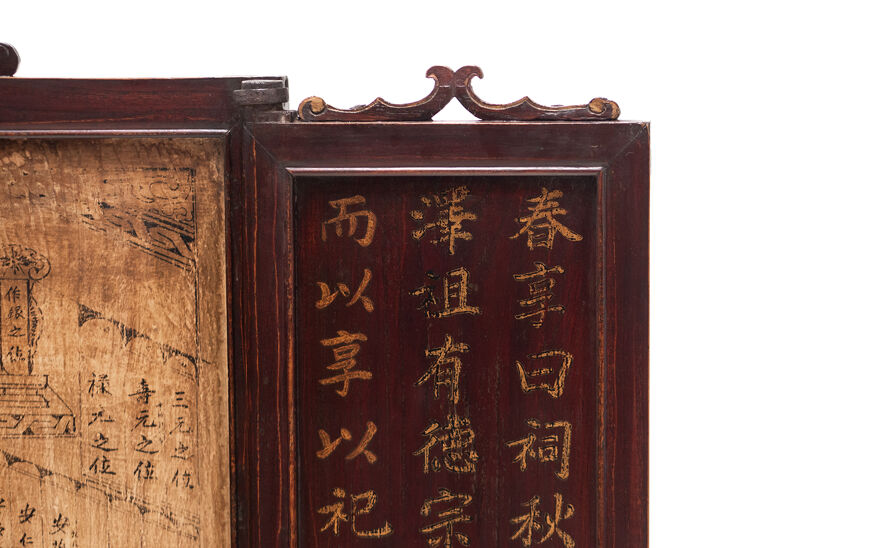 春享曰祠秋
澤祖有德宗
而以享以祀
三元之位
壽元之位
祿元之位
之位
安
安仁